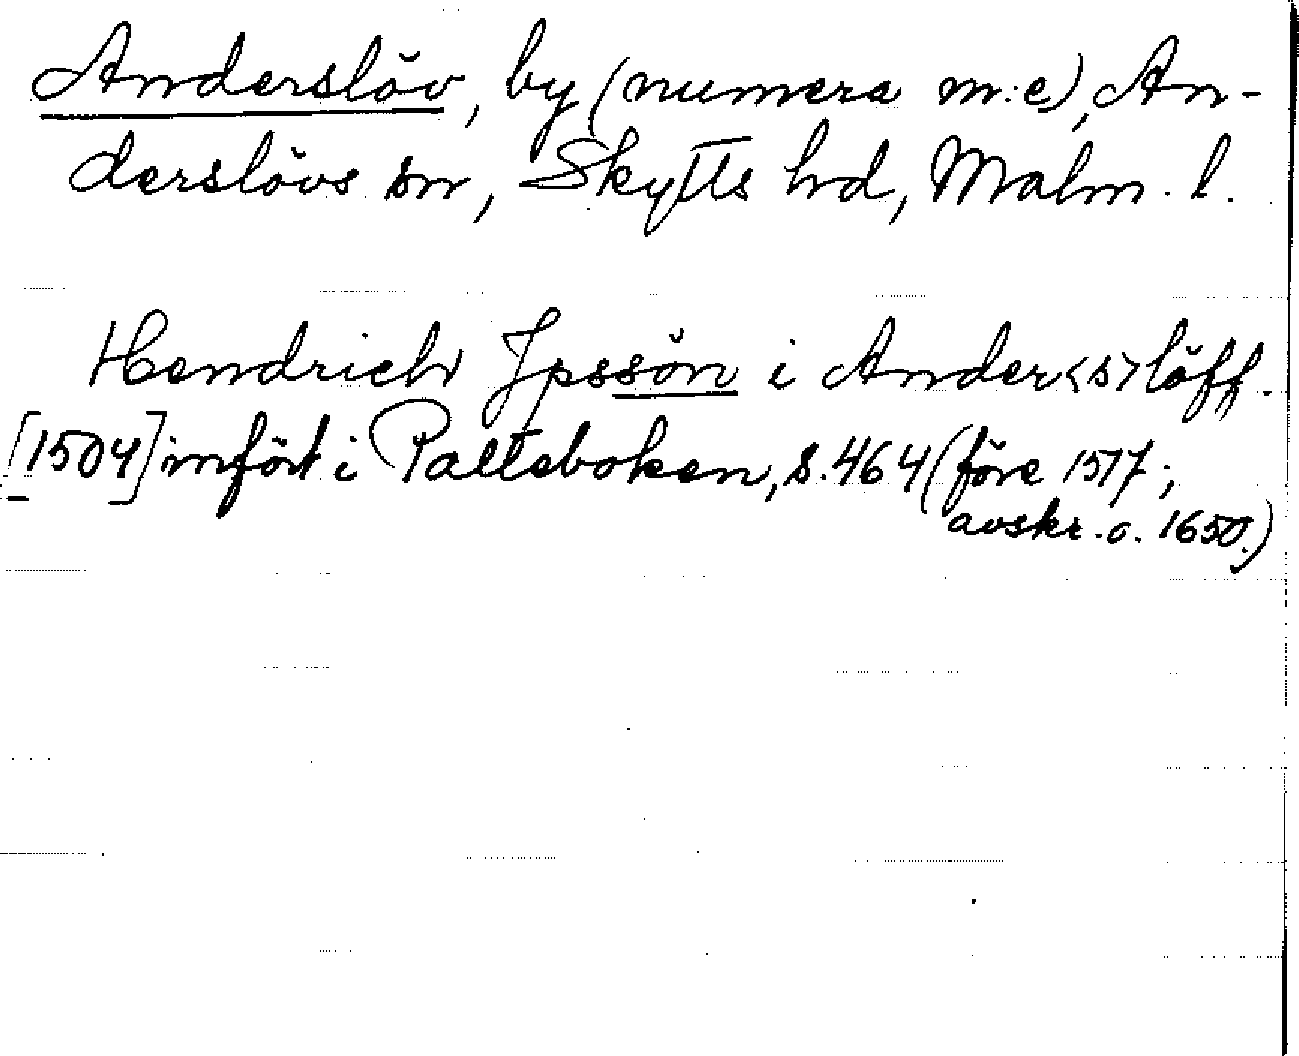 Anderslöv, by (numera m:e), An-
derslövs sn, Skytts hd, Malm. l.
Hendrich Jpssön i Ander<s>löff.
[1504] infört i Palteboken, s. 464 (före 1577;
avskr. o. 1650.)